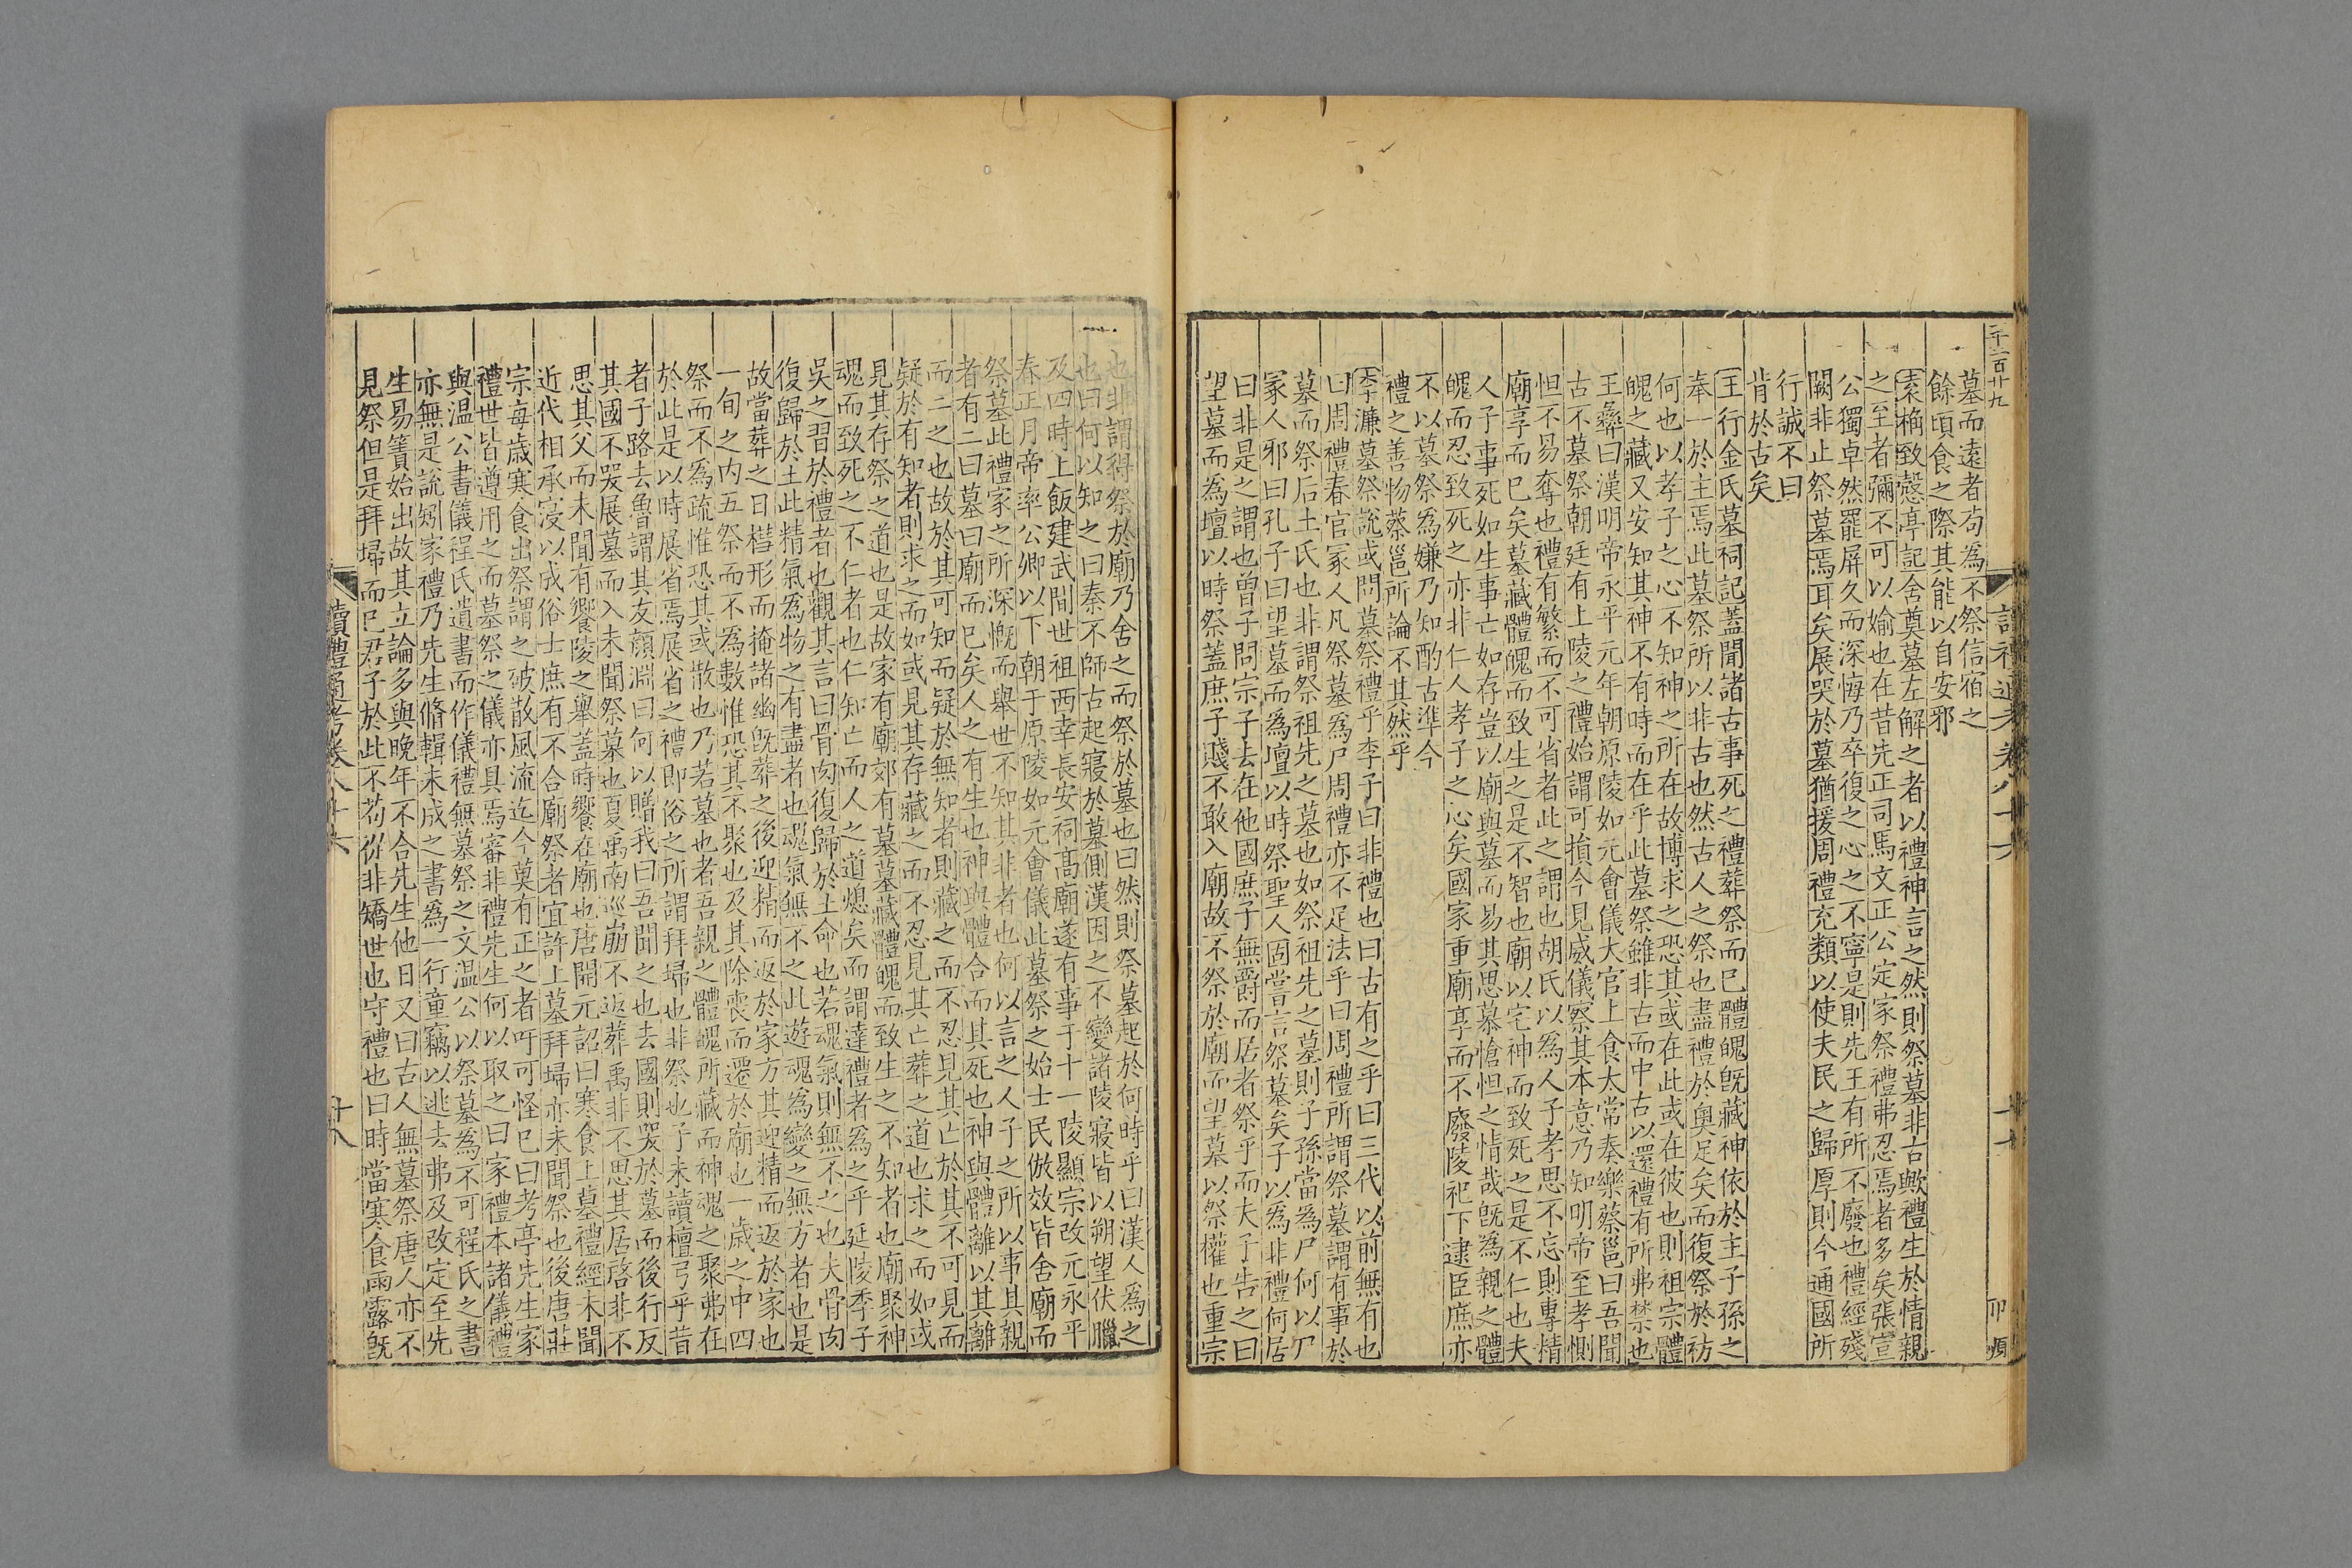 墓而遠者苟為不祭信宿之
餘頃食之際其能以自安邪
袁桷致慤亭記舍奠墓左解之者以禮神言之然則祭墓非古歟禮生於情親
之至者彌不可以婾也在昔先正司馬文正公定家祭禮弗忍焉者多矣張宣
公獨卓然罷屏久而深悔乃卒復之心之不寧是則先王有所不廢也禮經殘
闕非止祭墓焉耳矣展哭於墓猶援周禮充類以使夫民之歸厚則今通國所
行誠不曰
肯於古矣
王行金氏墓祠記蓋聞諸古事死之禮葬祭而已體魄旣藏神依於主子孫之
奉一於主焉此墓祭所以非古也然古人之祭也盡禮於奧足矣而復祭於祊
何也以孝子之心不知神之所在故博求之恐其或在此或在彼也則祖宗體
魄之藏又安知其神不有時而在乎此墓祭雖非古而中古以還禮有所弗禁也
王彝曰漢明帝永平元年朝原陵如元會儀大官上食太常奏樂蔡邕曰吾聞
古不墓祭朝廷有上陵之禮始謂可損今見威儀察其本意乃知明帝至孝惻
怛不易奪也禮有繁而不可省者此之謂也胡氏以為人子孝思不忘則專精
廟享而已矣墓藏體魄而致生之是不智也廟以宅神而致死之是不仁也夫
人子事死如生事亡如存豈以廟與墓而易其思慕愴怛之情哉旣為親之體
魄而忍致死之亦非仁人孝子之心矣國家重廟享而不廢陵祀下逮臣庶亦
不以墓祭為嫌乃知酌古準今
禮之善物蔡邕所論不其然乎
李濂墓祭說或問墓祭禮乎李子曰非禮也曰古有之乎曰三代以前無有也
曰周禮春官冢人凡祭墓為尸周禮亦不足法乎曰周禮所謂祭墓謂有事於
墓而祭后土氏也非謂祭祖先之墓也如祭祖先之墓則子孫當為尸何以
冢人邪曰孔子曰望墓而為壇以時祭聖人固嘗言祭墓矣子以為非禮何居
曰非是之謂也曾子問宗子去在他國庶子無爵而居者祭乎而夫子告之曰
望墓而為壇以時祭蓋庶子賤不敢入廟故不祭於廟而望墓以祭權也重宗
也非謂得祭於廟乃舍之而祭於墓也曰然則祭墓起於何時乎曰漢人為之
也曰何以知之曰秦不師古起寢於墓側漢因之不變諸陵寢皆以朔望伏臘
及四時上飯建武間世祖西幸長安祠高廟遂有事于十一陵顯宗改元永平
春正月帝率公卿以下朝于原陵如元會儀此墓祭之始士民倣效皆舍廟而
祭墓此禮家之所深慨而舉世不知其非者也何以言之人子之所以事其親
者有二曰墓曰廟而已矣人之有生也神與體合而其死也神與體離以其離
而二之也故於其可知而疑於無知者則藏之而不忍見其亡於其不可見而
疑於有知者則求之而如或見其存藏之而不忍見其亡葬之道也求之而如或
見其存祭之道也是故家有廟郊有墓墓藏體魄而致生之不知者也廟聚神
魂而致死之不仁者也仁知亡而人之道熄矣而謂達禮者為之乎延陵季子
吳之習於禮者也觀其言曰骨肉復歸於土命也若魂氣則無不之也夫骨肉
復歸於土此精氣為物之有盡者也魂氣無不之此遊魂為變之無方者也是
故當葬之日槥形而掩諸幽旣葬之後迎精而返於家方其迎精而返於家也
一旬之內五祭而不為數惟恐其不聚也及其除喪而遷於廟也一歲之中四
祭而不為疏惟恐其或散也乃若墓也者吾親之體魄所藏而神魂之聚弗在
於此是以時展省焉展省之禮卽俗之所謂拜埽也非祭也子未讀檀弓乎昔
者子路去魯謂其友顏淵曰何以贈我曰吾聞之也去國則哭於墓而後行反
其國不哭展墓而入未聞祭墓也夏禹南巡崩不返葬禹非不思其居啓非不
思其父而未聞有饗陵之舉蓋時饗在廟也唐開元詔曰寒食上墓禮經未聞
近代相承寖以成俗士庶有不合廟祭者宜許上墓拜埽亦未聞祭也後唐莊
宗每歲寒食出祭謂之破散風流迄今莫有正之者吁可怪已曰考亭先生家
禮世皆遵用之而墓祭之儀亦具焉審非禮先生何以取之曰家禮本諸儀禮
與温公書儀程氏遺書而作儀禮無墓祭之文温公以祭墓為不可程氏之書
亦無是說矧家禮乃先生脩輯未成之書為一行童竊以逃去弗及改定至先
生易簀始出故其立論多與晚年不合先生他日又曰古人無墓祭唐人亦不
見祭但是拜埽而已君子於此不苟從非矯世也守禮也曰時當寒食雨露旣
讀禮通考卷八十六
十八